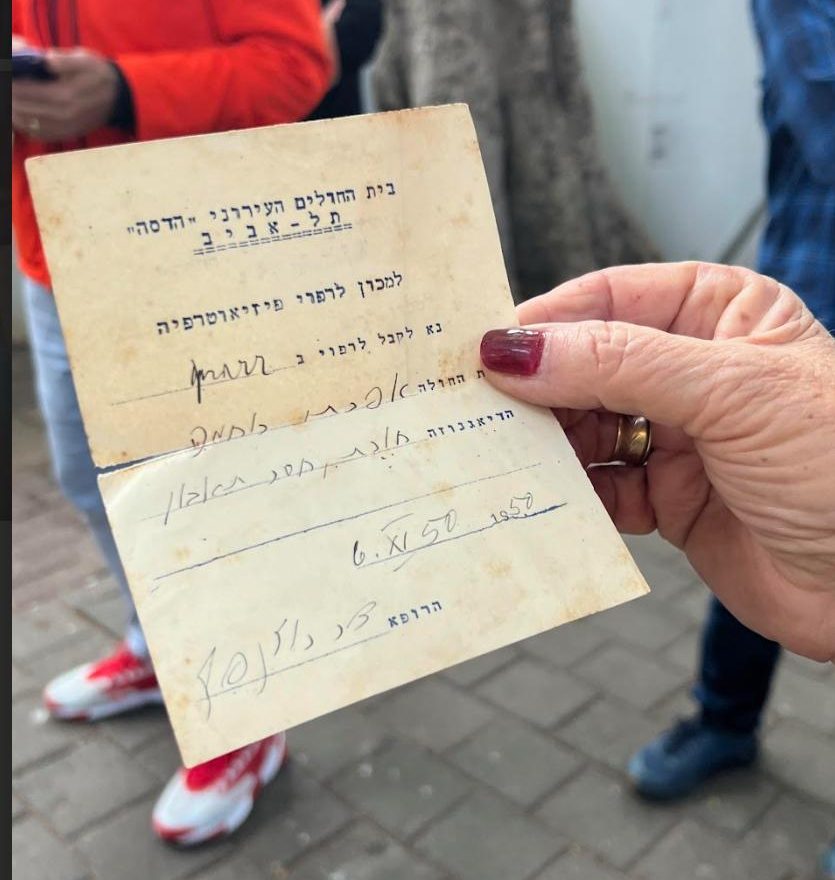 בית החולים העירוני "הדסה"
תל-אביב
למכון לרפוי פיזיאוטרפיה
נא לקבל לרפוי ב
ת החולה נחמה
הדיאגנוזה חוסר תאבון
6. XI 50 1950
הרופא דר